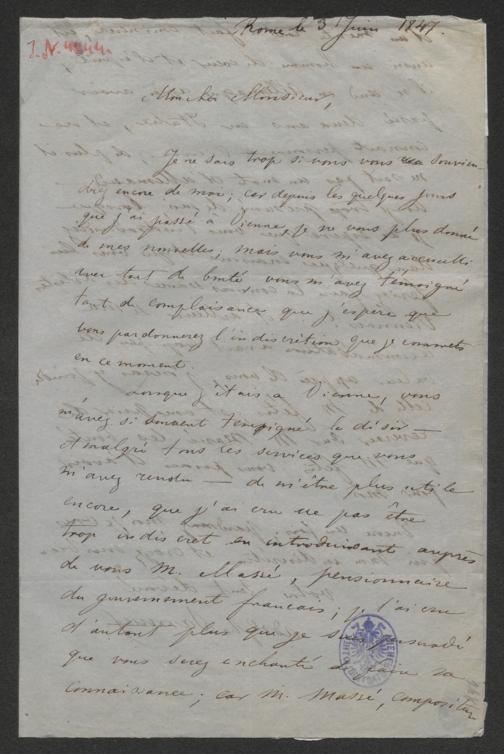 Rome le 3 Juin 1847.
J.N. 4244.
Mon cher Monsieur,
Je ne sais trop si vous vous souvien-
drez encore de moi; car depuis les quelques jours
que j'ai passé à Vienne, je ne vous plus donné
de mes nouvelles; mais vous m'avez accueilli
avec tant de bonté vous m'avez témoigné
tant de complaisance que j'espère que
vous pardonnerez l'indiscrétion que je commets
en ce moment.
Lorsque j'étais à Vienne, vous
m'avez si souvent temoigné le désir —
et malgré tous les services que vous
m'avez rendu — de m'être plus utile
encore, que j'ai cru ne pas être
trop indiscret en introduisant auprès
de vous M. Massé, pensionnaire
du gouvernement francais; je l'ai cru
d'autant plus que je suis persuadé
que vous serez enchanté de faire sa
connaissance; car M. Massé, compositeur